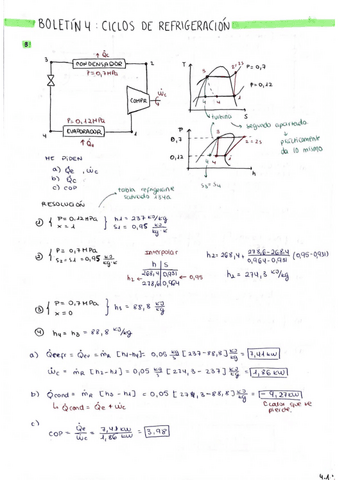 BOLETÍN 4: CICLOS DE REFRIGERACIÓN
8
↑ Q̇c
3
CONDENSADOR
2
P=0,7MPa
COMPR
ẇc
P=0,12MPa
4
EVAPORADOR
1
↑ Q̇e
T
2=2s
P=0,7
P=0,12
S
turbina
segundo apartado
↓
prácticamente
da lo mismo
P
0,7
0,12
2=2s
h
S3=S4
ME PIDEN
a) Q̇e, ẇc
b) Q̇c
c) COP
RESOLUCIÓN
tabla refrigerante
134A
1 { P=0.12MPa
x=1 } h1= 237 kJ/kg
s1= 0,95 kJ/kg·K
2 { P=0.7MPa
s2=s1=0,95 kJ/kg·K
Interpolar
h | s
268,4 | 0,931
h2 ← ← 0,95
278,6 | 0,964
h2= 268,4 + 278,6-268.4 / 0.964-0.931 (0.95-0.931)
h2= 274,3 kJ/kg
3 { P=0,7MPa
x=0 } h3= 88,8 kJ/kg
4 h4=h3= 88,8 kJ/kg
a) Q̇refr = Q̇e = ṁR [h1-h4]= 0,05 kg/s [237-88,8] kJ/kg = 7,41 kW
ẇc = ṁR [h2-h1] = 0,05 kg/s [274,3-237] kJ/kg = 1,86 kW
b) Q̇cond = ṁR [h3-h2] = 0,05 [274,3-88,8] kJ/kg = -9,27 kW
Calor que se
pierde
↳ Q̇cond = Q̇e + ẇc
c)
COP = Q̇e / ẇc = 7,41 kW / 1,86 kW = 3,98
4.1